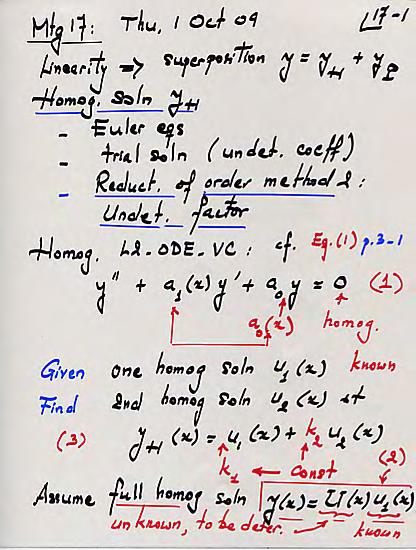 Mtg 17: Thu, 1 Oct 09
17-1
Linearity => superposition y = y_H + y_P
Homog. soln y_H
- Euler eqs
- trial soln (undet. coeff)
- Reduct. of order method 2:
Undet. factor
Homog. L2-ODE-VC: cf. Eq.(1) p.3-1
y'' + a_1(x) y' + a_0 y = 0 (1)
a_0(x) homog.
Given one homog soln u_1(x) known
Find 2nd homog soln u_2(x) st
(3) y_H(x) = u_1(x) + k_2 u_2(x)
k_1 ← const (2)
Assume full homog soln y(x) = U(x) u_1(x)
unknown, to be deter. known